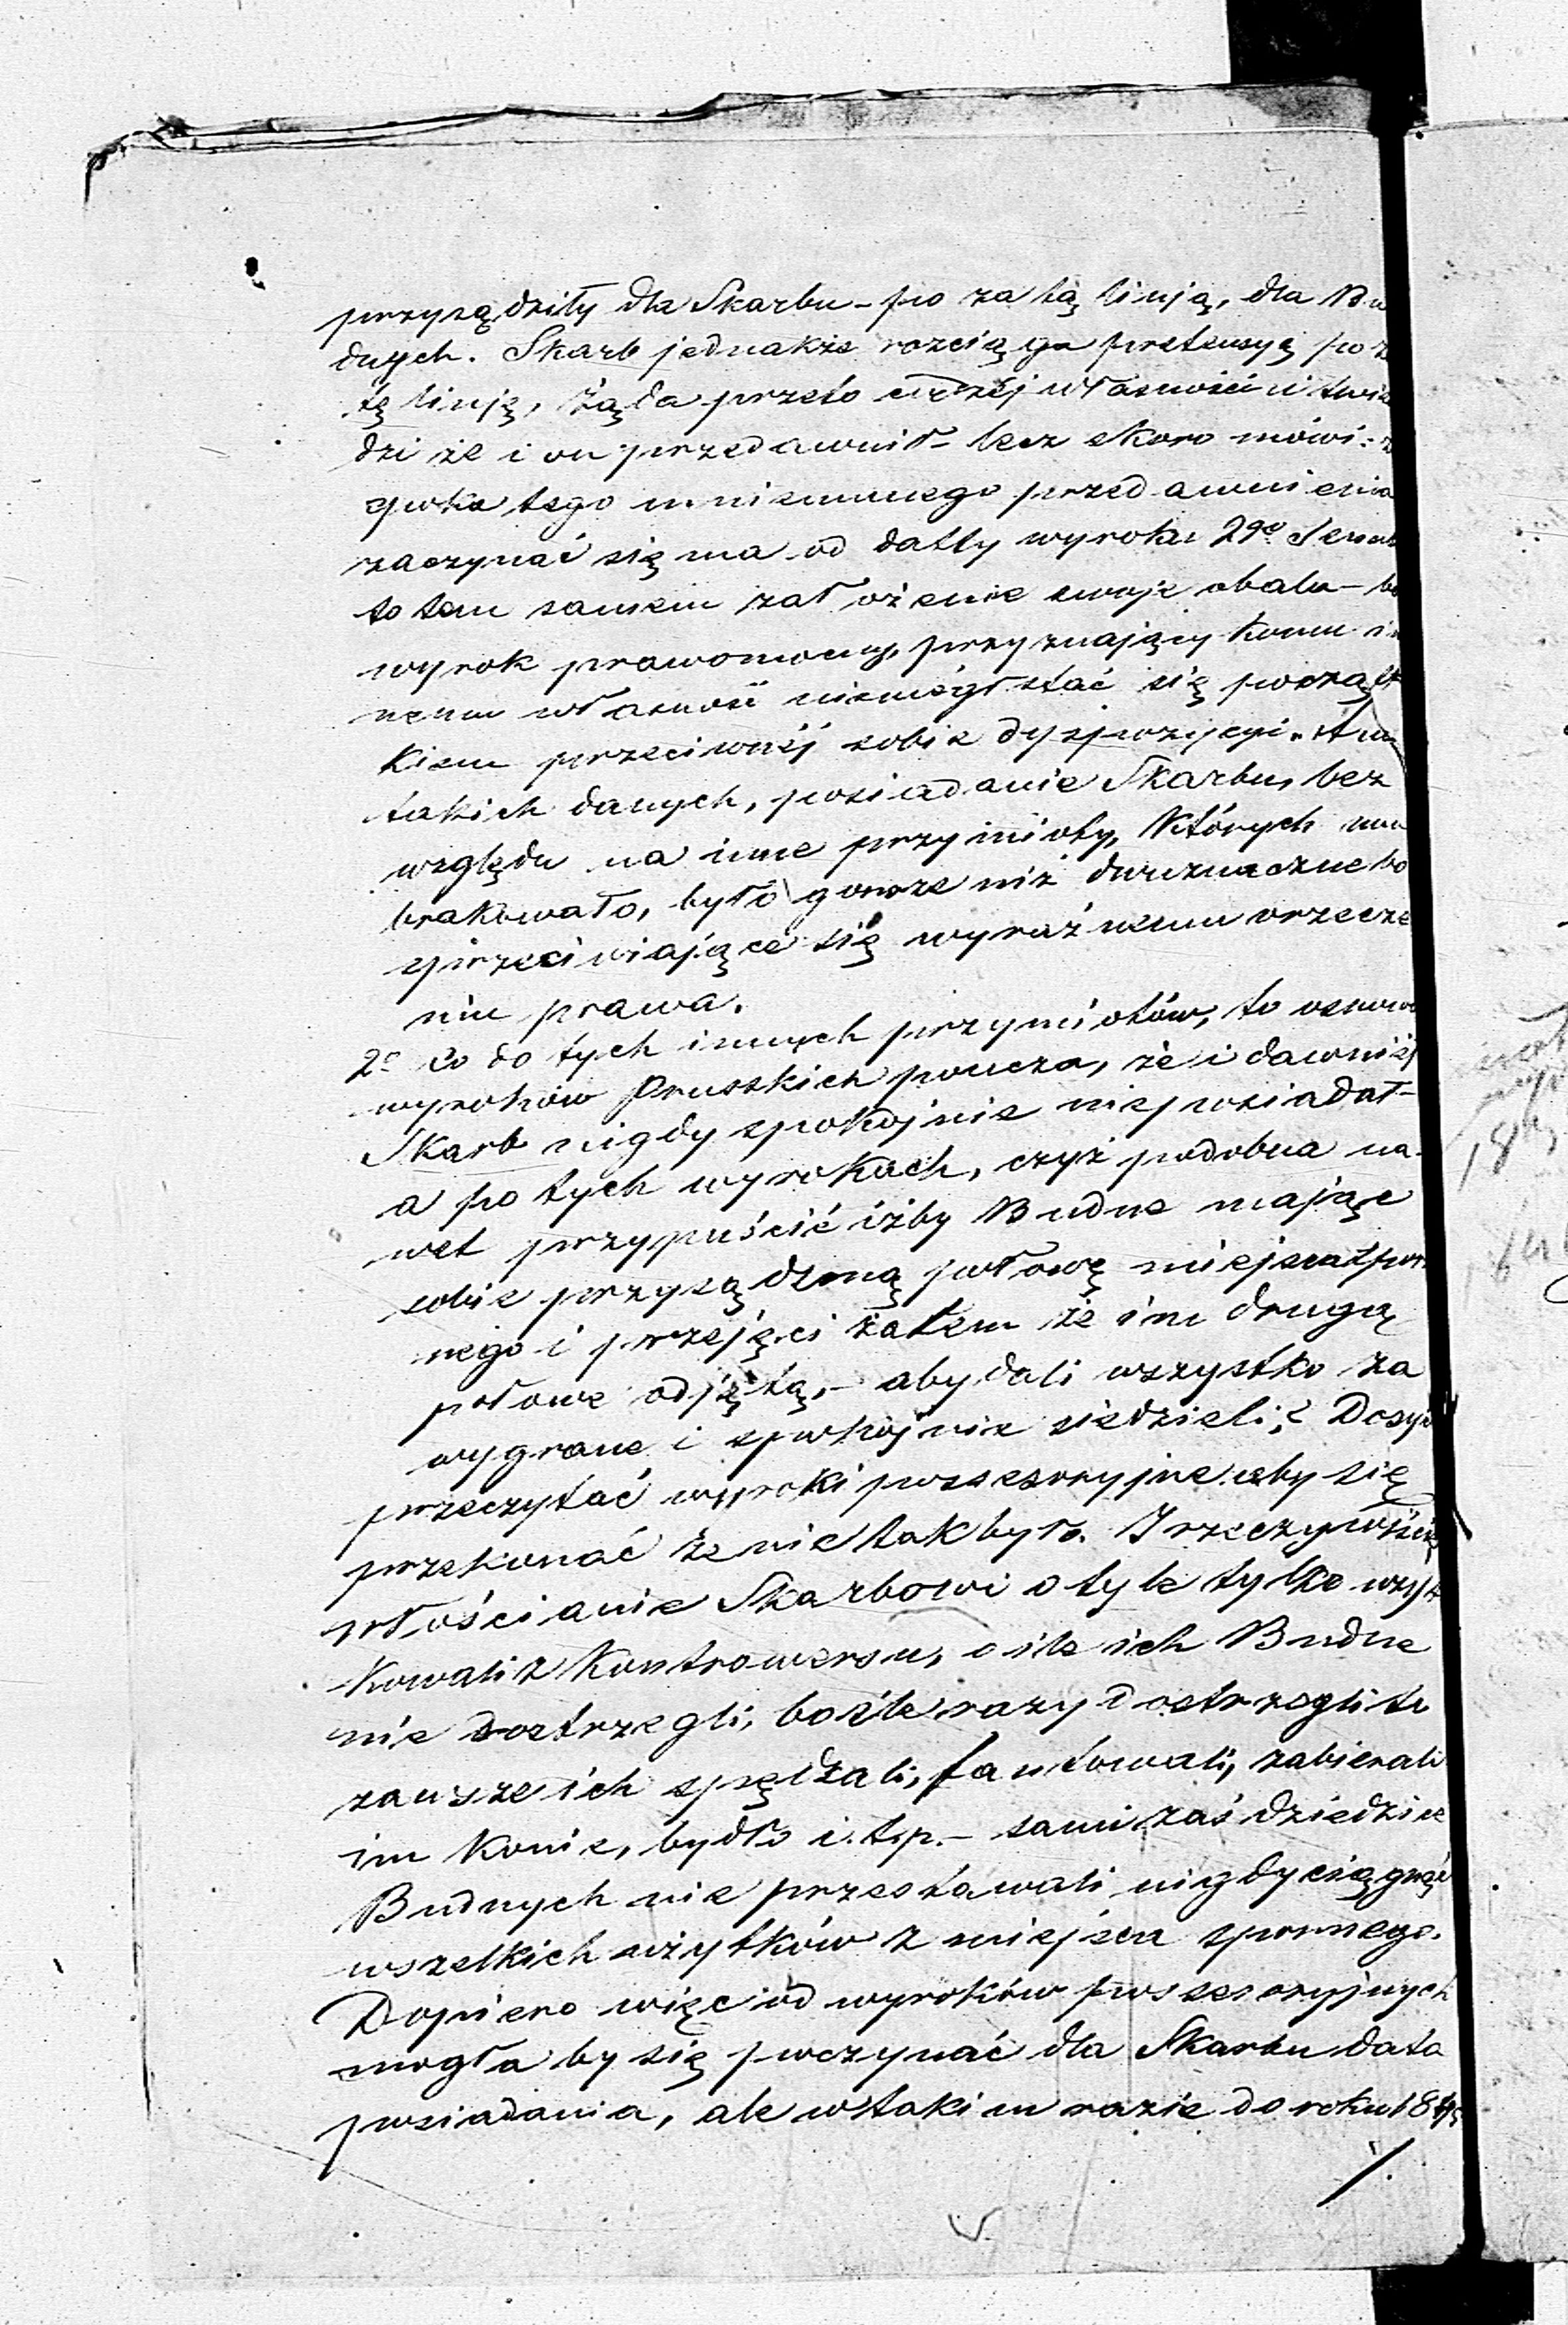 przysądziły dla Skarbu – po za tą linją, dla Bu
dnych. Skarb jednakże rozciąga pretensyą po z
tę linję, żąda przeto cudzéj własności i twie
dzi że i on przedawnił – lecz skoro mówi: ż
epoka tego mniemanego przedawnienia
zaczynać się ma od datty wyroku 2go Senat
to tem samem założenie swoje obala – bo
wyrok prawomocny, przyznający komu in
nemu własność niemógł stać się począt
kiem przeciwnéj sobie dyspozycyi. A w
takich danych, posiadanie Skarbu, bez
względu na inne przymioty, których mu
brakowało, było gorsze niż dwuznaczne bo
sprzeciwiające się wyraźnemu orzecze
niu prawa.
2e Co do tych innych przymiotów, to osnowa
wyroków Pruskich poucza, że i dawniéj
Skarb nigdy spokojnie nieposiadał –
a po tych wyrokach, czyż podobna na-
wet przypuścić iżby Budne mając
sobie przysądzoną połowę miejsca spor
nego i przejęci żalem że im drugą
połowe odjętą, – aby dali wszystko za
wygrane i spokojnie siedzieli? Dosyć
przeczytać wyroki possessoryjne aby się
przekonać że nie tak było. I rzeczywiście
włościanie Skarbowi o tyle tylko użyt
kowali z kontrowersu, o ile ich Budne
nie dostrzegli, bo ile razy dostrzegli to
zawsze ich spędzali, fantowali, zabierali
im konie, bydło i.t.p. – sami zaś dziedzice
Budnych nie przestawali nigdy ciągnąć
wszelkich użytków z miejsca spornego.
Dopiero więc od wyroków possessoryjnych
mogła by się poczynać dla Skarbu data
posiadania, ale w takim razie do roku 184